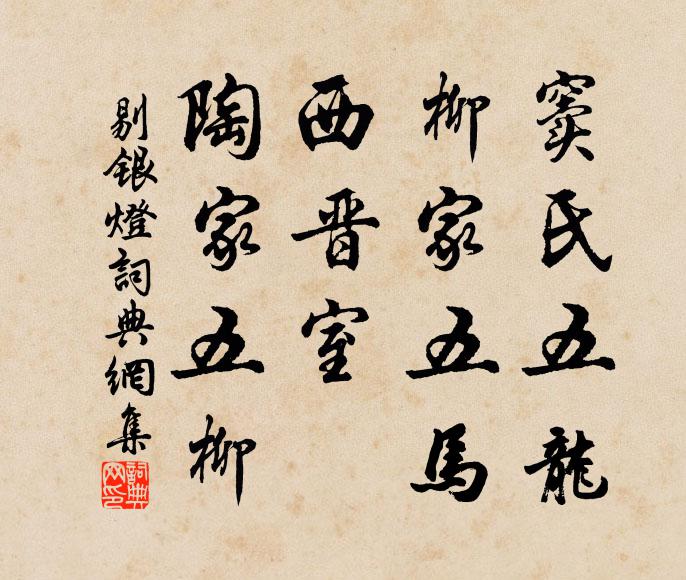 窦氏五龍
柳家五馬
西晋室
陶家五柳
剔銀燈詞典網集
詞典網印